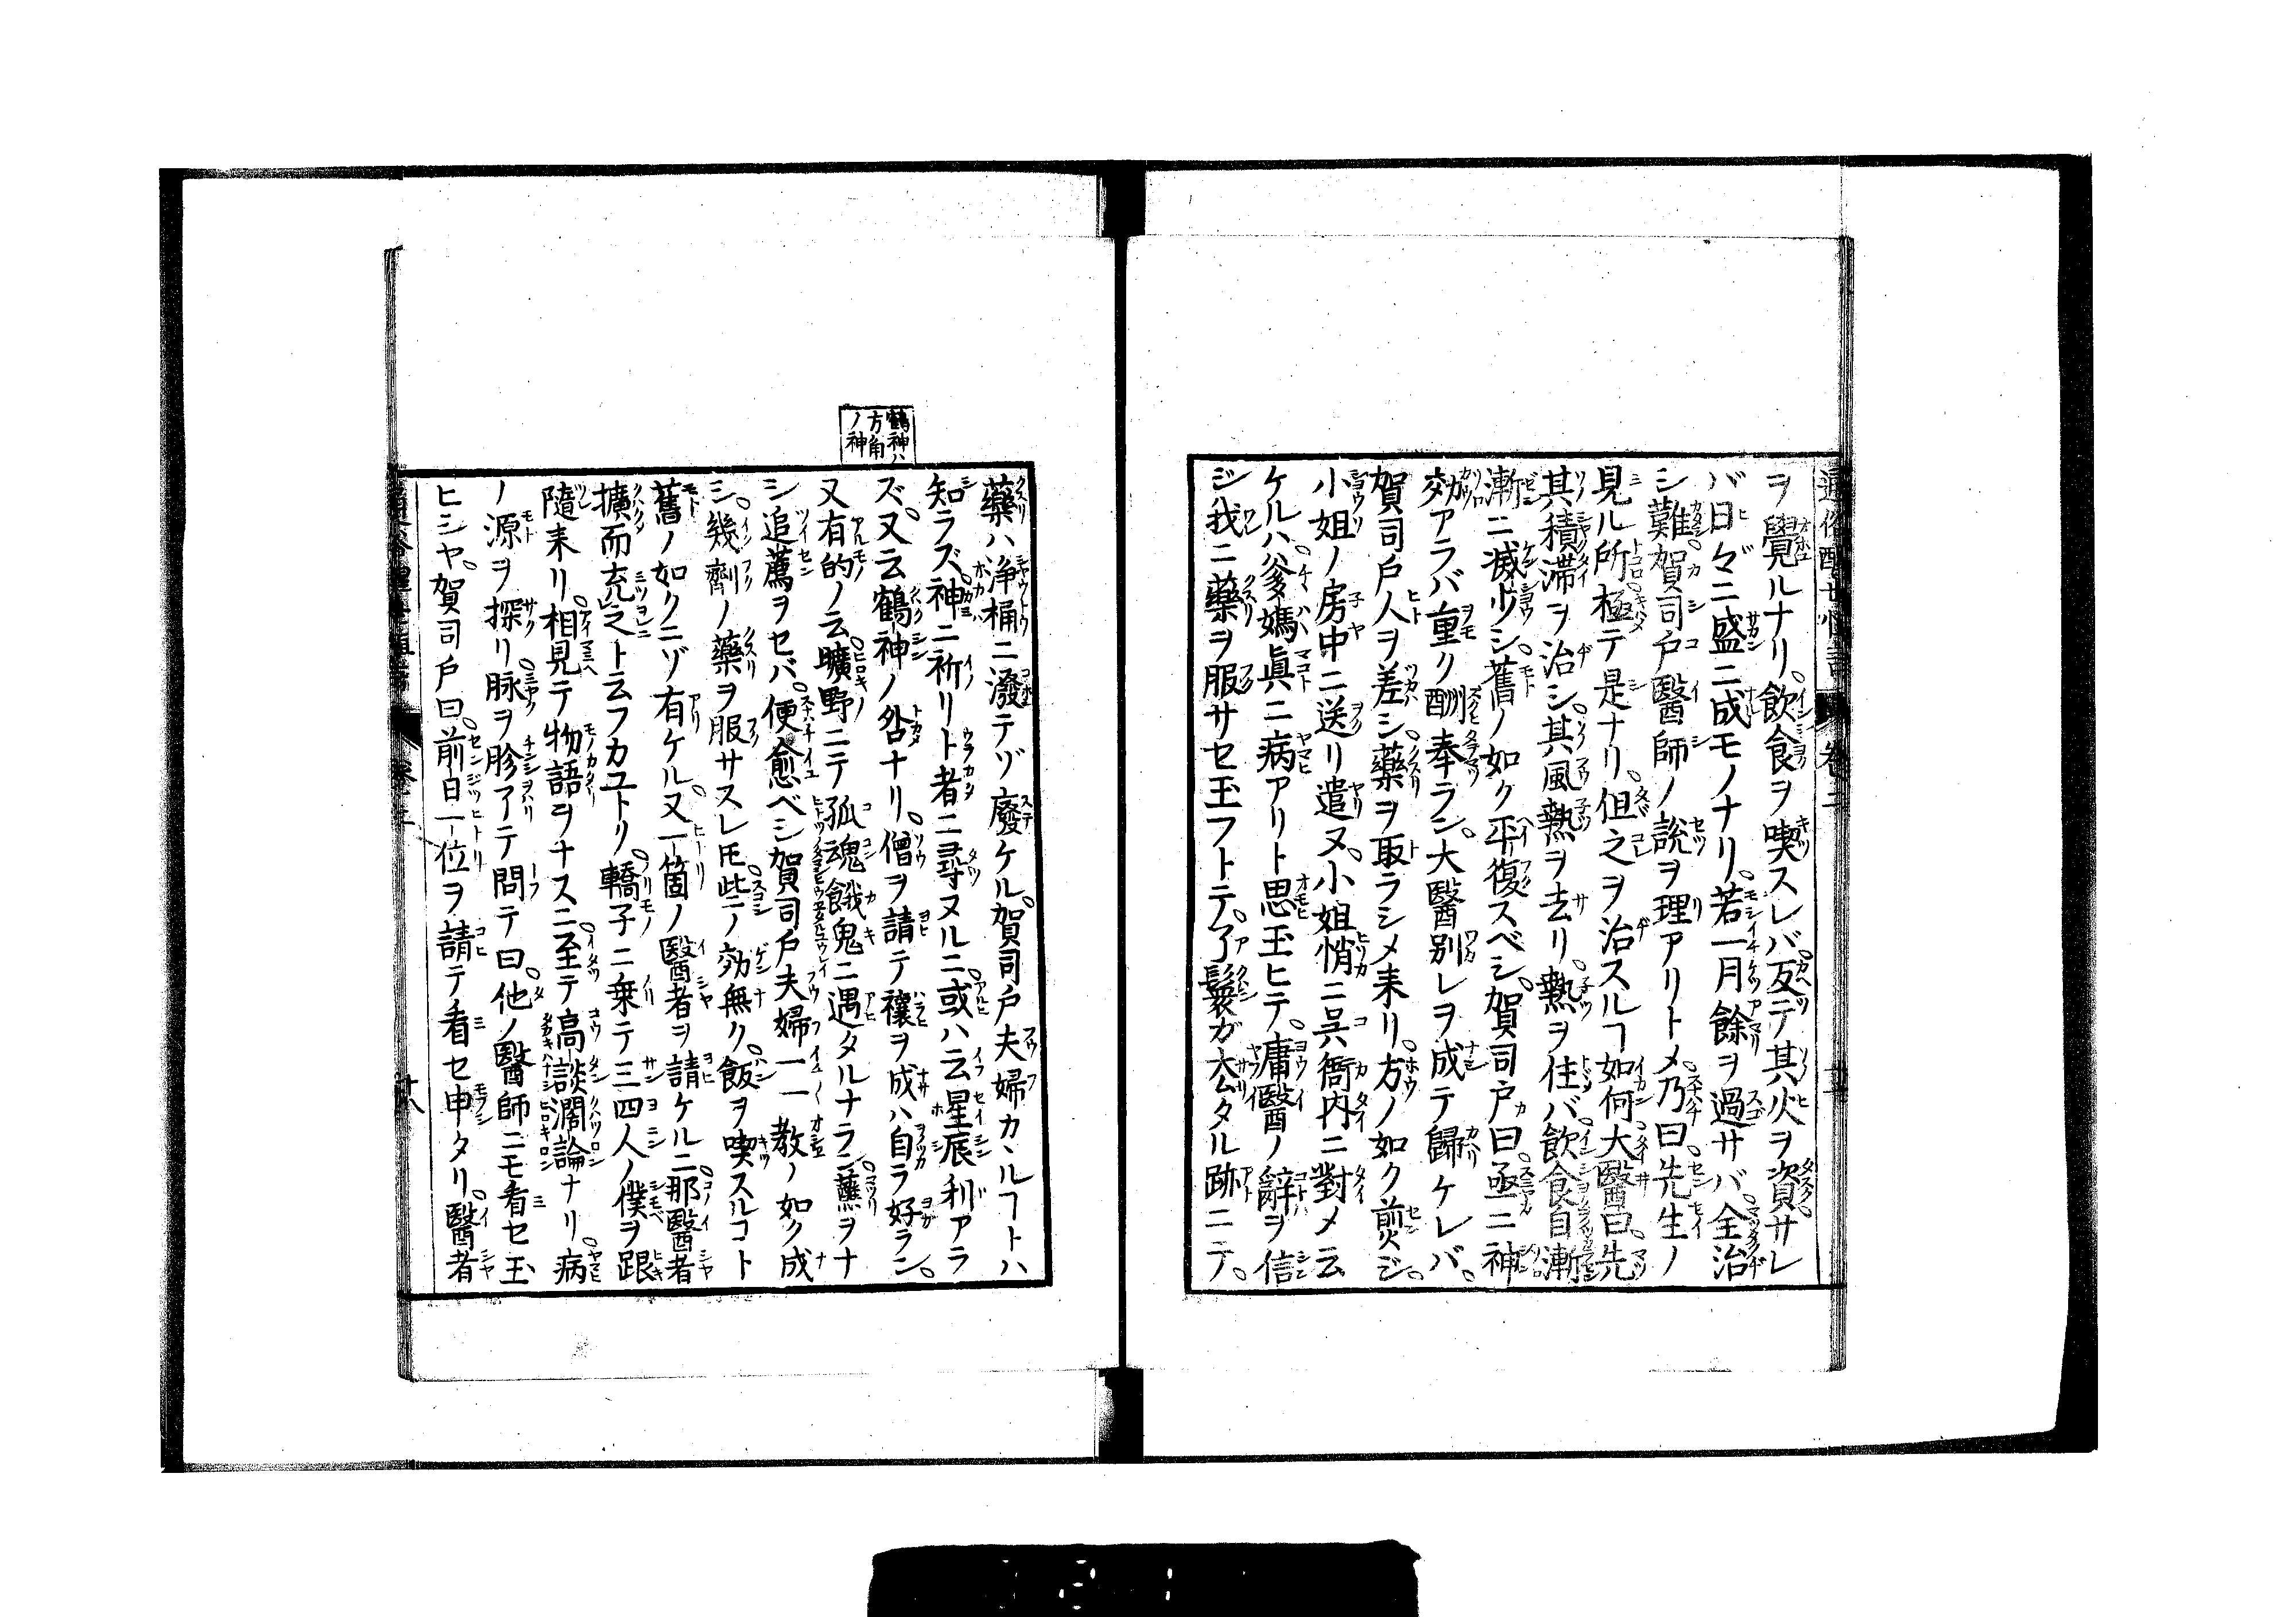 ヲ覺ルナリ。飲食ヲ喫スレバ。反テ其火ヲ資サレ
バ日々ニ盛ニ成モノナリ。若一月餘ヲ過サバ。全治
シ難。賀司戶醫師ノ說ヲ理アリトメ。乃曰。先生ノ
見ル所極テ是ナリ。但之ヲ治スルヿ如何大醫曰。先
其積滯ヲ治シ。其風熱ヲ去リ。熱ヲ住バ。飲食自漸
漸ニ減少シ。舊ノ如ク平復スベシ。賀司戶曰。亟ニ神
効アラバ重ク酬奉ラン。大醫別レヲ成テ歸ケレバ。
賀司戶人ヲ差シ。藥ヲ取ラシメ来リ。方ノ如ク煎ジ。
小姐ノ房中ニ送リ遣ヌ。小姐悄ニ呉衙内ニ對メ云
ケルハ。爹媽眞ニ病アリト思玉ヒテ。庸醫ノ辭ヲ信
ジ我ニ藥ヲ服サセ玉フトテ。了鬟ガ厺タル跡ニテ。
鶴神ハ
方角
ノ神
藥ハ浄桶ニ潑テゾ廢ケル。賀司戶夫婦カヽルヿトハ
知ラズ。神ニ祈リト者ニ尋ヌルニ。或ハ云星辰利アラ
ズ。又云鶴神ノ咎ナリ。僧ヲ請テ禳ヲ成ハ自ラ好ラン。
又有的ノ云曠野ニテ孤魂餓鬼ニ遇タルナラン。蘸ヲナ
シ追薦ヲセバ。便愈ベシ賀司戶夫婦一一教ノ如ク成
シ。幾劑ノ藥ヲ服サスレ𪜈。些ノ効無ク。飯ヲ喫スルコト
舊ノ如クニゾ有ケル。又一箇ノ醫者ヲ請ケルニ。那醫者
擴而充之ト云フカユトリ。轎子ニ乗テ三四人ノ僕ヲ跟
隨来リ。相見テ物語ヲナスニ。至テ高談濶論ナリ。病
ノ源ヲ探リ。脉ヲ胗了テ問テ曰。他ノ醫師ニモ看セ玉
ヒシヤ。賀司戶曰。前日一位ヲ請テ看セ申タリ。醫者